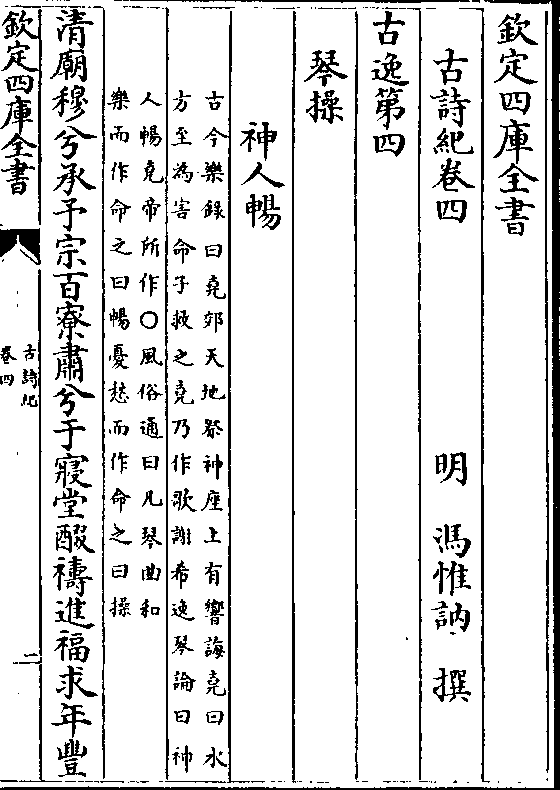 欽定四庫全書
古詩紀卷四
明 馮惟訥 撰
古逸第四
琴操
神人暢
古今樂錄曰堯郊天地祭神座上有響誨堯曰水
方至為害命子救之堯乃作歌謝希逸琴論曰神
人暢堯帝所作○風俗通曰凡琴曲和
樂而作命之曰暢憂愁而作命之曰操
清廟穆兮承予宗百寮肅兮于寢堂醊禱進福求年豐
欽定四庫全書
古詩紀
卷四
一